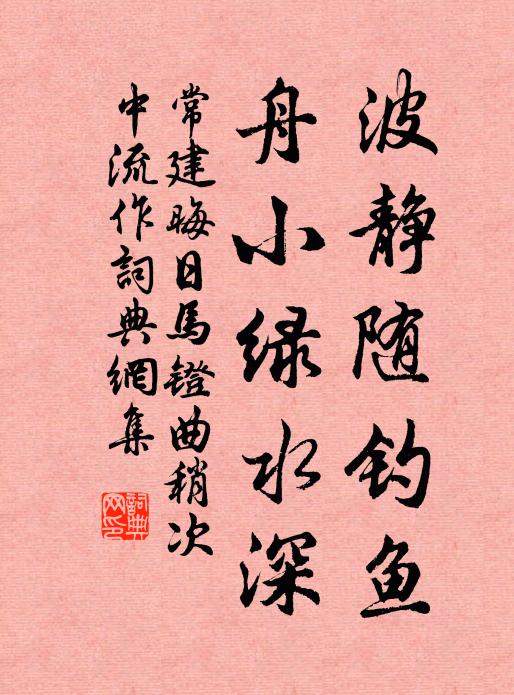 波静随钓鱼
舟小绿水深
常建晦日馬镫曲稍次
中流作詞典網集
詞典
网印